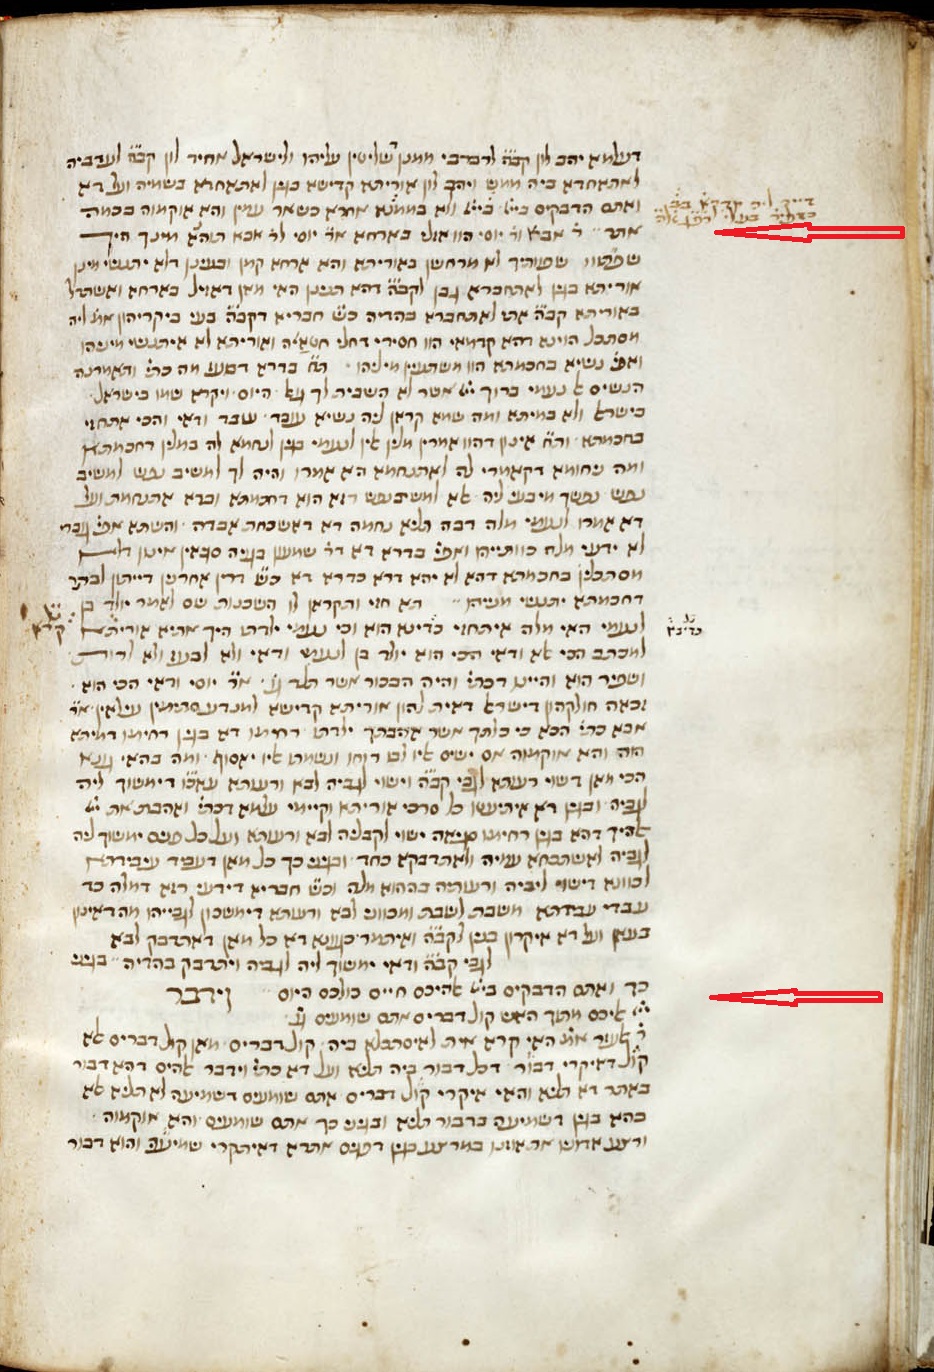 דעלמא יהב לון קב״ה לרברבי ממנן שליטין עליהו ולישראל אחיד לון קב״ה לעדביה
לאתאחדא ביה ממש ויהב לון אוריתא קדישא בגין לאתאחדא בשמיה ועל דא
ואתם הדבקים ביי׳ ביי׳ ולא בממנא אחרא כשאר עמין והא אוקמוה בכמה
אתר ר׳ אבא ור׳ יוסי הוו אזלי בארחא א״ר יוסי לר׳ אבא תוהא מינך היך
שפוותיך לא מרחשן באוריתא והא ארחא קמן ובעינן דלא יתנשי מינן
אוריתא בגין לאתחברא גבן לקב״ה דהא תנינן האי מאן דאזיל בארחא ואשתדל
באוריתא קב״ה אתי לאתחברא בהדיה כ״ש חבריא דקב״ה בעי ביקריהון א״ל
מסתכל הוינא דהא קדמאי הוו חסידי דחלי חטאה ואוריתא לא איתנשי מינהו
ואפי׳ נשיא בחכמתא הוו משתעיין מיליהו ת״ח בדרא דבועז מה כתי׳ ותאמרנה
הנשים א׳ נעמי ברוך יי׳ אשר לא השבית לך גאל היום ויקרא שמו בישראל
בישרא׳ ולא במיתא ומה שמא קראן ליה נשיא עובד עובד ודאי והכי אתחזי
בחכמתא ות״ח אינון דהוו אמרין מלין אלין לנעמי בגין לנחמא לה במלין דחכמתא
ומה נחומא דקאמרי לה לאתנחמא הא אמרו והיה לך למשיב נפש למשיב
נפש נפשך מיבעי ליה אלא למשיב נפש רזא הוא דחכמתא ובדא אתנחמת ועל
דא אמרו לנעמי מלה רבה תליא נחמה דא דאשכחת אבדה והשתא אפי׳ גוברי
לא ידעי מלה כוותייהו ואפי׳ בדרא דא דר׳ שמעון בגויה סגיאין אינון דלא
מסתכלן בחכמתא דהא לא יהא דרא כדרא דא כ״ש דרין אחרנין דייתון לבתר
דחכמתא יתנשי מנייהו תא חזי ותקראן לו השכנות שם לאמר יולד בן
לנעמי האי מלה איתחזי כדינא הוא וכי נעמי ילדתו היך אתיא אוריתא
למכתב הכי אלא ודאי הכי הוא יולד בן לנעמי ודאי ולא לבעז ולא לרות
ושפיר הוא והיינו דכתי׳ והיה הבכור אשר תלד וג׳ א״ר יוסי ודאי הכי הוא
זכאה חולקהון דישרא׳ דאית להון אוריתא קדישא למנדע סתימין עילאין א״ר
אבא כתי׳ הכא כי כלתך אשר אהבתך ילדתו רחימו דא בגין רחימו דמיתא
הוה והא אוקמוה אם ישים אליו לבו רוחו ונשמתו אליו יאסוף ומה בהאי גוונא
הכי מאן דשוי רעותא לגבי קב״ה וישוי לגביה לבא ורעותא עאכ״ו דימשוך ליה
לגביה ובגין דא איתיעטו כל סרכי אוריתא וקיימי עלמא דכתי׳ ואהבת את יי׳
אלהיך דהא בגין רחימו סגיאה ישוי לקבליה לבא ורעותא ועל כל פנים ימשוך ליה
לגביה לאשתבחא עמיה ולאתדבקא כחד ובגיני כך כל מאן דעביד עבידתא
לכוונא דישוי ליביה ורעותיה בההוא מלה וכ״ש חבריא דידעי רזא דמלה כד
עבדי עבידתא משבת לשבת ומכווני לבא ורעותא דימשכון לגבייהו מה דאינון
בעאן ועל דא איקרון בנין לקב״ה ואיתמר כגוונא דא כל מאן דאתדבק לבא
לגבי קב״ה ודאי ימשוך ליה לגביה ויתדבק בהדיה בגיני
כך ואתם הדבקים ביי׳ אלהיכם חיים כולכם היום וידבר
יי׳ אליכם מתוך האש קול דברים אתם שומעים וג׳
ר׳ אלעזר אמ׳ האי קרא אית לאיסתכלא ביה קול דברים מאן קול דברים אלא
קול דאיקרי דבור דכל דבור ביה תליא ועל דא כתי׳ וידבר אלהים דהא דבור
באתר דא תליא והאי איקרי קול דברים אתם שומעים דשמיעה לא תליא אלא
בהא בגין דשמיעה בדבור תליא ובגיני כך אתם שומעים והא אוקמוה
ורצע אדוניו את אזנו במרצע בגין דפגים אתרא דאיתקרי שמיעה והוא דבור